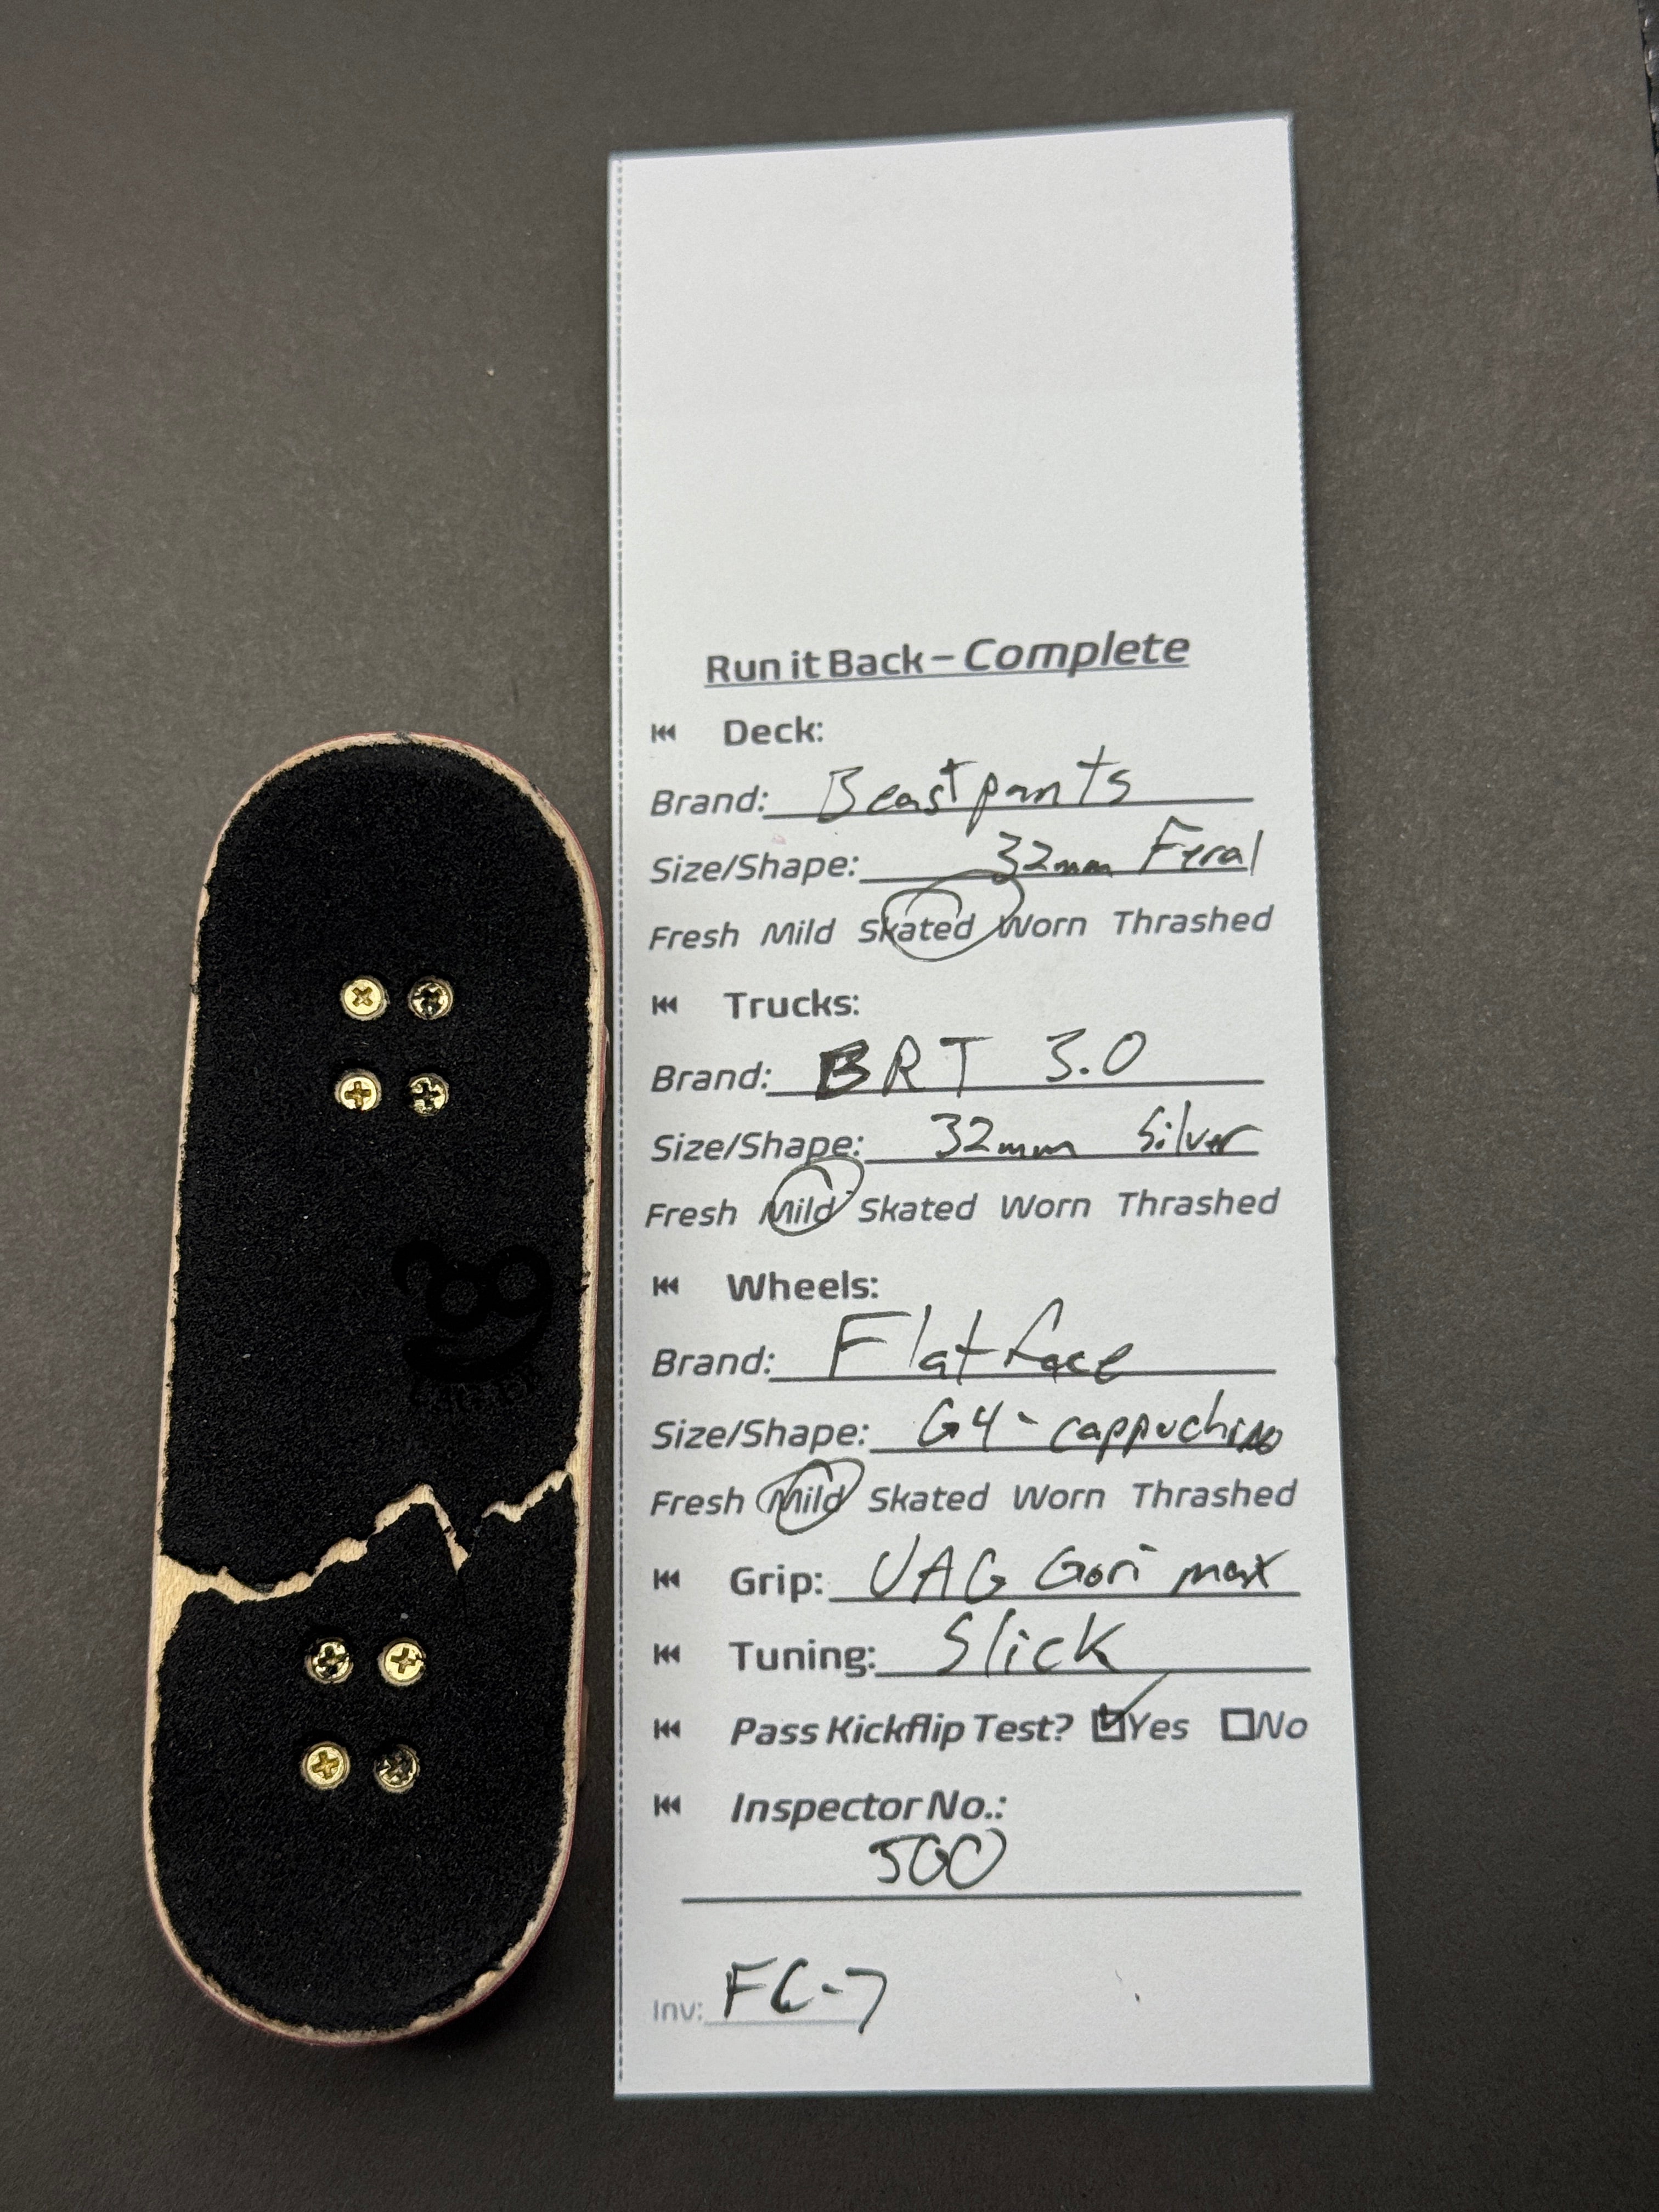 Run it Back – Complete
Deck:
Brand: Beastpants
Size/Shape: 32mm Feral
Fresh Mild Skated Worn Thrashed
Trucks:
Brand: BRT 3.0
Size/Shape: 32mm Silver
Fresh Mild Skated Worn Thrashed
Wheels:
Brand: Flatface
Size/Shape: G4 - cappuchino
Fresh Mild Skated Worn Thrashed
Grip: UAG Gori max
Tuning: Slick
Pass Kickflip Test? Yes No
Inspector No.:
500
Inv: FC-7